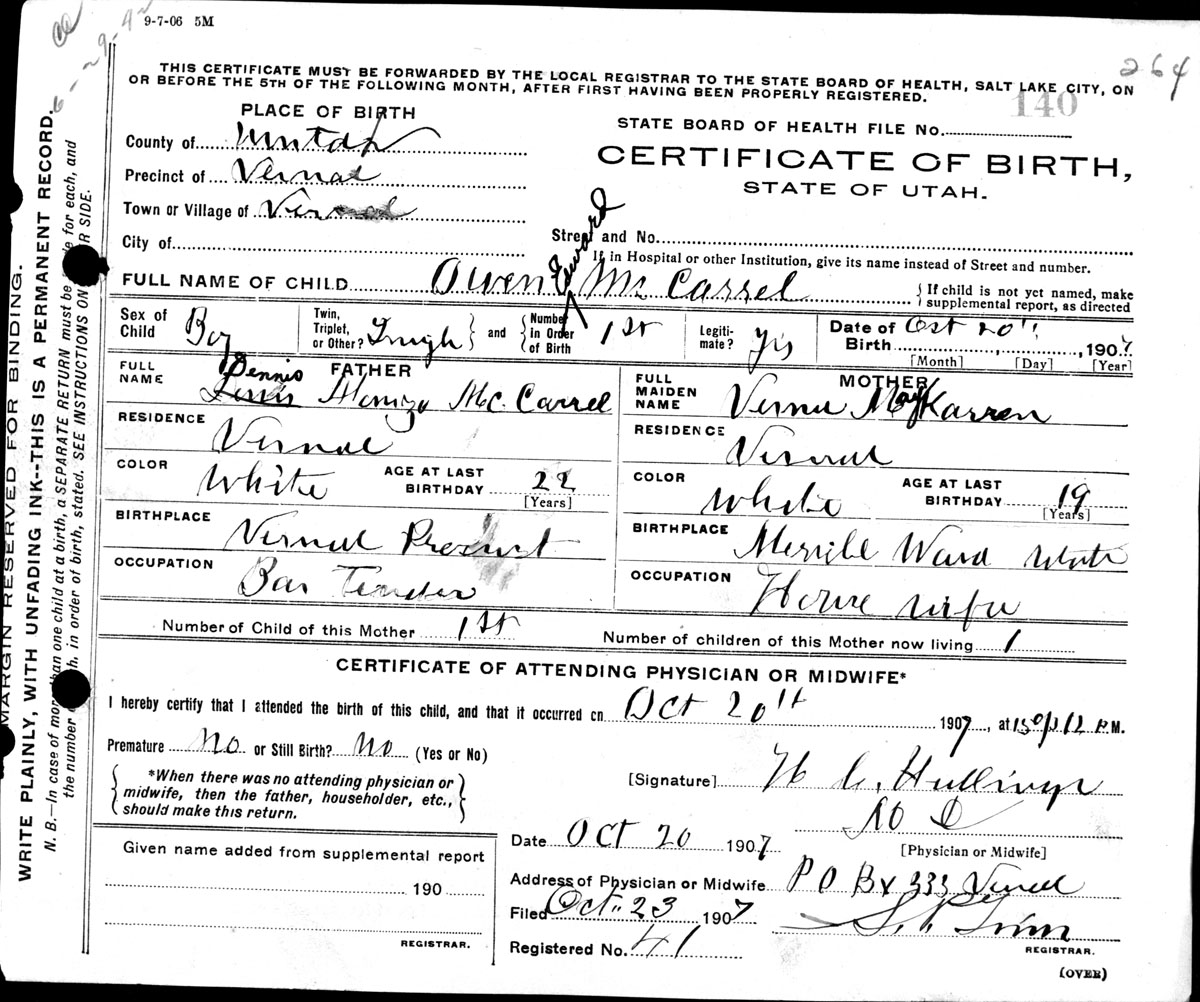 9-7-06 5M
264
THIS CERTIFICATE MUST BE FORWARDED BY THE LOCAL REGISTRAR TO THE STATE BOARD OF HEALTH, SALT LAKE CITY, ON
OR BEFORE THE 5TH OF THE FOLLOWING MONTH, AFTER FIRST HAVING BEEN PROPERLY REGISTERED.
140
PLACE OF BIRTH
STATE BOARD OF HEALTH FILE No.
County of Uintah
CERTIFICATE OF BIRTH,
Precinct of Vernal
STATE OF UTAH.
Town or Village of Vernal
City of
Street and No.
If in Hospital or other Institution, give its name instead of Street and number.
FULL NAME OF CHILD Owen Edward Mc Carrel
{ If child is not yet named, make
supplemental report, as directed
Sex of Child Boy
Twin, Triplet, or Other? Single } and { Number in Order of Birth 1st
Legiti- mate? Yes
Date of Birth Oct 20", 1907
[Month] [Day] [Year]
FATHER
FULL NAME Dennis Alonizo Mc. Carrel
RESIDENCE Vernal
COLOR White AGE AT LAST BIRTHDAY 22
[Years]
BIRTHPLACE Vernal Precinct
OCCUPATION Bar Tender
MOTHER
FULL MAIDEN NAME Verna May Karren
RESIDENCE Vernal
COLOR White AGE AT LAST BIRTHDAY 19
[Years]
BIRTHPLACE Merrill Ward Utah
OCCUPATION House wife
Number of Child of this Mother 1st Number of children of this Mother now living 1
CERTIFICATE OF ATTENDING PHYSICIAN OR MIDWIFE*
I hereby certify that I attended the birth of this child, and that it occurred on Oct 20th 1907, at P.M.
Premature No or Still Birth? No (Yes or No)
{ *When there was no attending physician or
midwife, then the father, householder, etc.,
should make this return. }
[Signature] H C. Hullinger
M D
[Physician or Midwife]
Date Oct 20 1907
Address of Physician or Midwife P O Bx 333 Vernal
Filed Oct. 23 1907
REGISTRAR.
Registered No. 41
(OVER)
Given name added from supplemental report
190
REGISTRAR.
MARGIN RESERVED FOR BINDING.
WRITE PLAINLY, WITH UNFADING INK--THIS IS A PERMANENT RECORD.
N. B.—In case of more than one child at a birth, a SEPARATE RETURN must be made for each, and
the number of birth, in order of birth, stated. SEE INSTRUCTIONS ON OTHER SIDE.